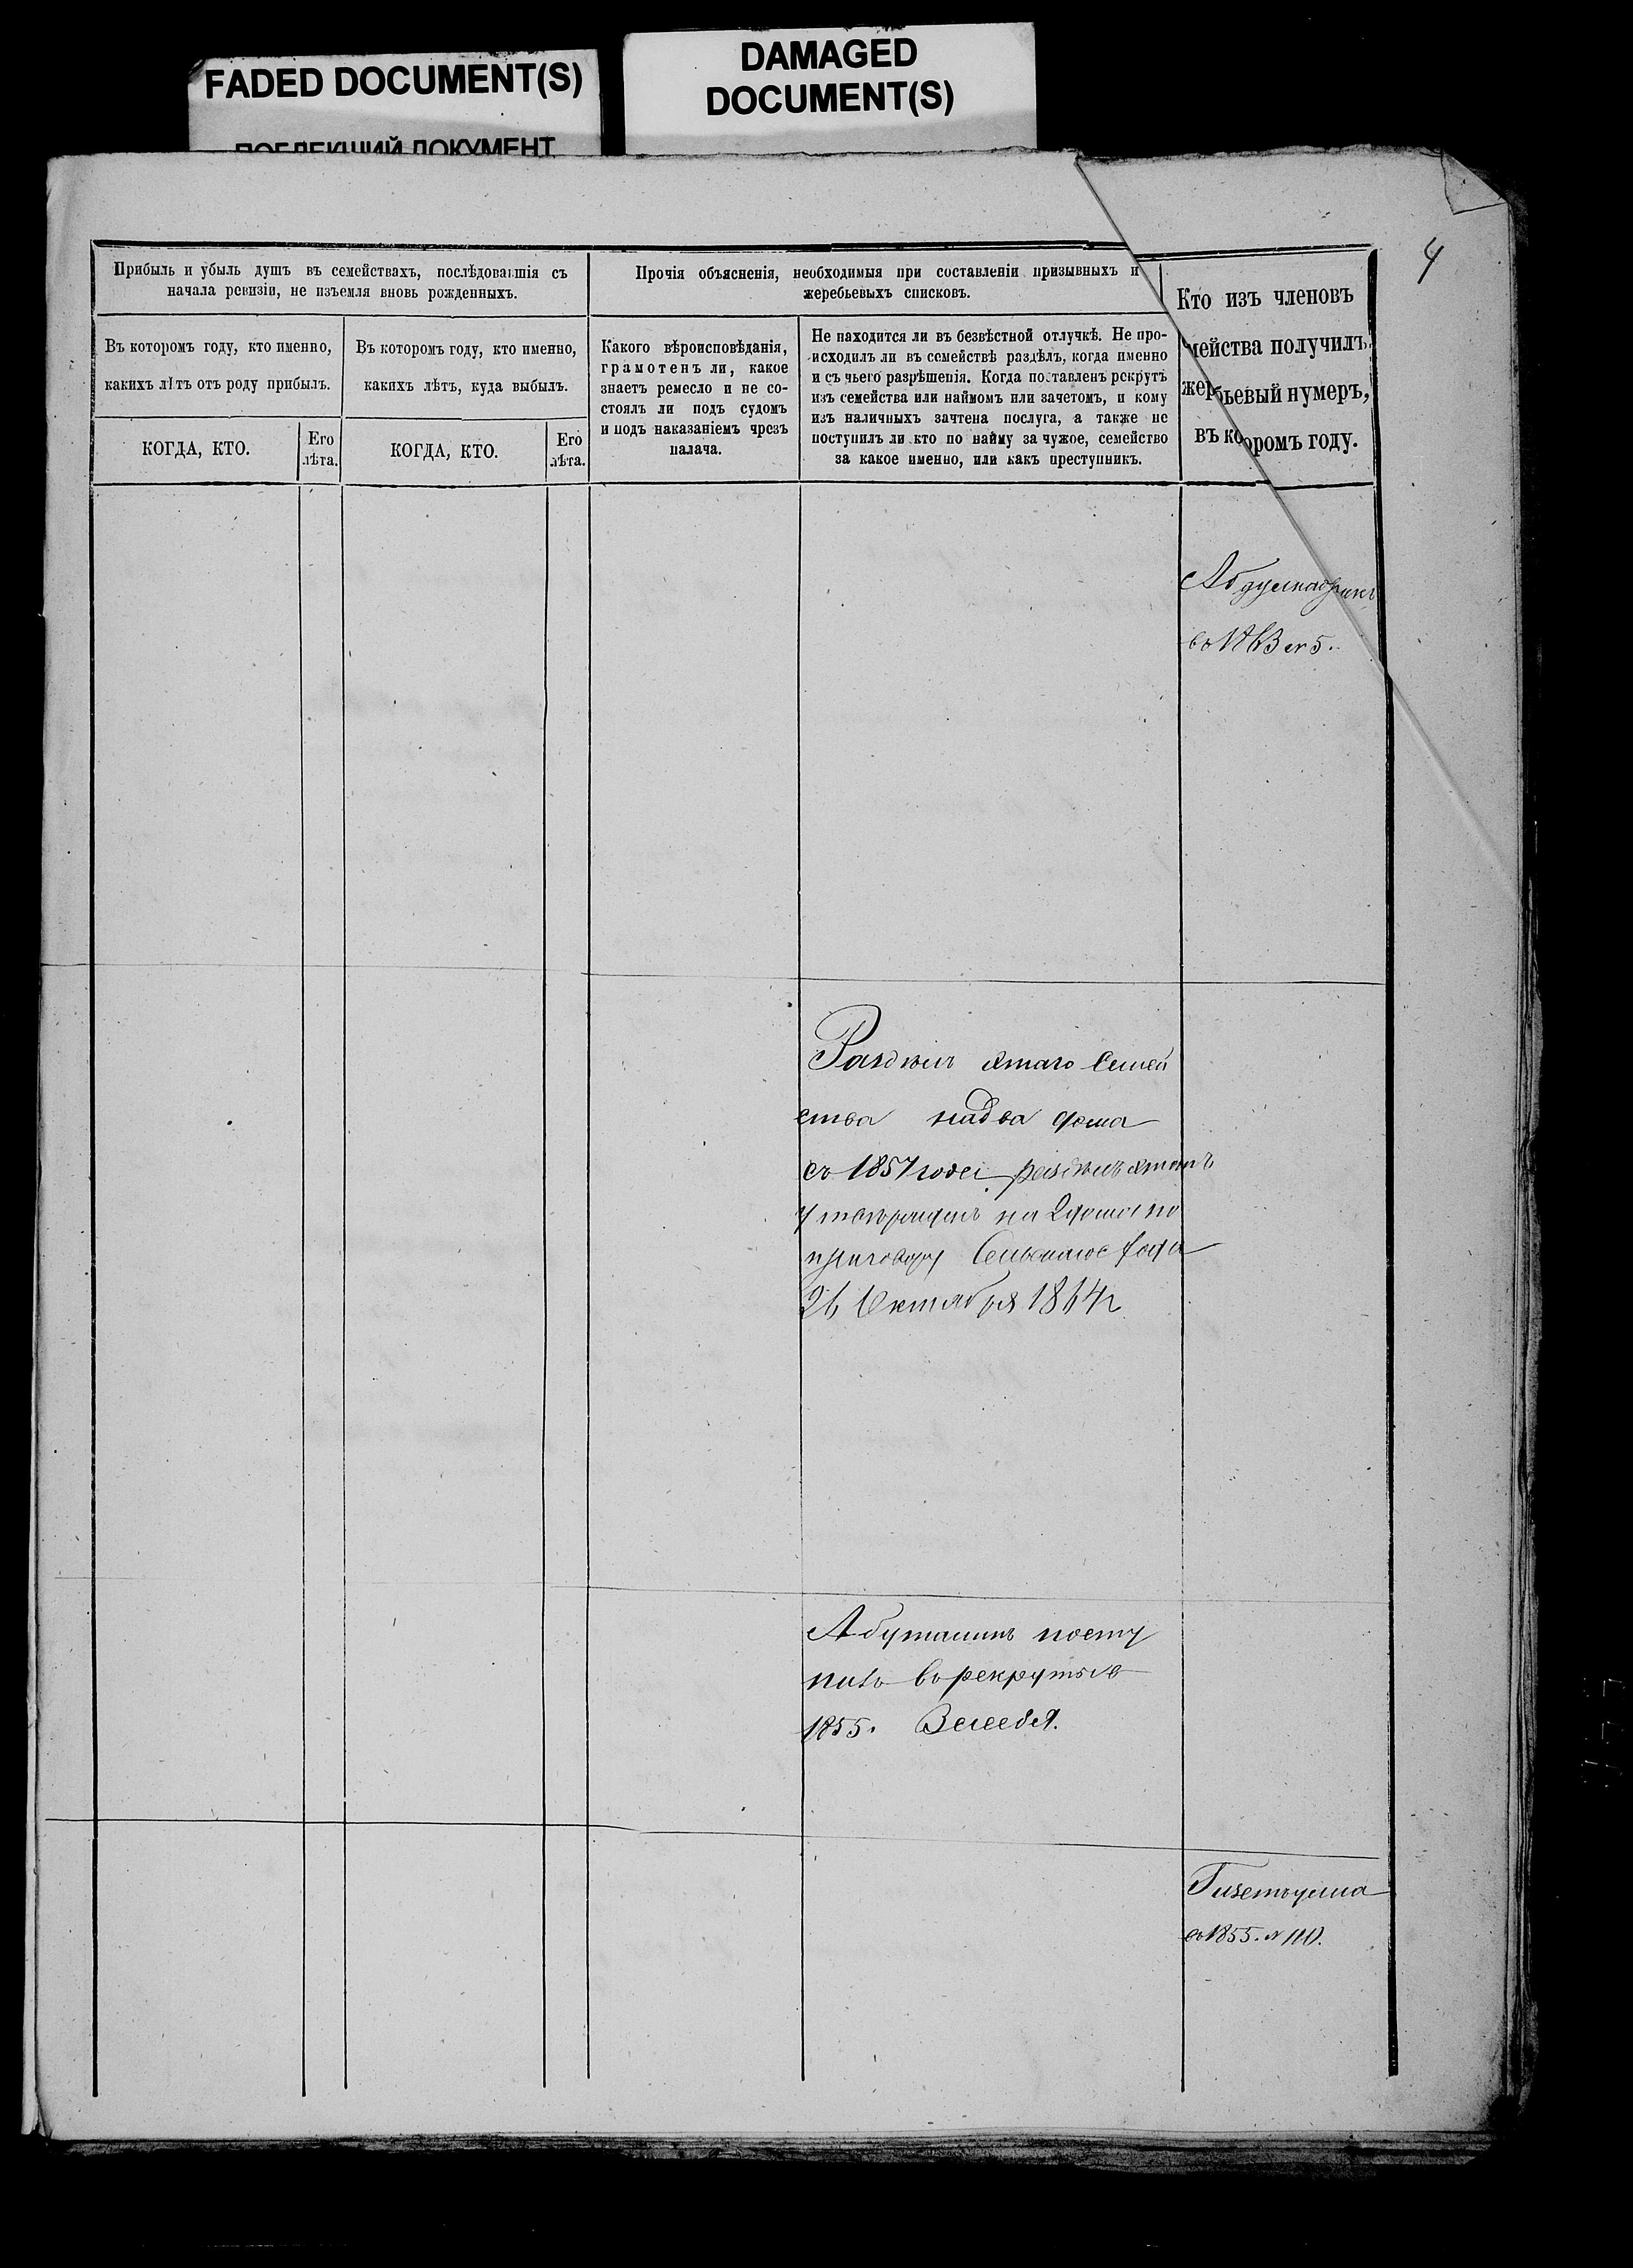 FADED DOCUMENT(S)
DAMAGED
DOCUMENT(S)
ПОБЛЕКШИЙ ДОКУМЕНТ
4
Прибыль и убыль душъ въ семействахъ, послѣдовавшія съ
начала ревизіи, не изъемля вновь рожденныхъ.
Прочія объясненія, необходимыя при составленіи призывныхъ и
жеребьевыхъ списковъ.
Кто изъ членовъ
мейства получилъ
жеребьевый нумеръ,
въ которомъ году.
Въ которомъ году, кто именно,
какихъ лѣтъ отъ роду прибылъ.
Въ которомъ году, кто именно,
какихъ лѣтъ, куда выбылъ.
Какого вѣроисповѣданія,
грамотенъ ли, какое
знаетъ ремесло и не со-
стоялъ ли подъ судомъ
и подъ наказаніемъ чрезъ
палача.
Не находится ли въ безвѣстной отлучкѣ. Не про-
исходилъ ли въ семействѣ раздѣлъ, когда именно
и съ чьего разрѣшенія. Когда поставленъ рекрутъ
изъ семейства или наймомъ или зачетомъ, и кому
изъ наличныхъ зачтена послуга, а также не
поступилъ ли кто по найму за чужое, семейство
за какое именно, или какъ преступникъ.
КОГДА, КТО.
Его
лѣта.
КОГДА, КТО.
Его
лѣта.
Раздѣлъ этаго Семей
ства на два дома
съ 1857 года раздѣлъ этотъ
утвержденъ на 2 дома по
приговору Сельскаго схода
26 Октября 1864 г
поступ
пилъ въ рекруты въ
1855. За себя.
въ 1855. №